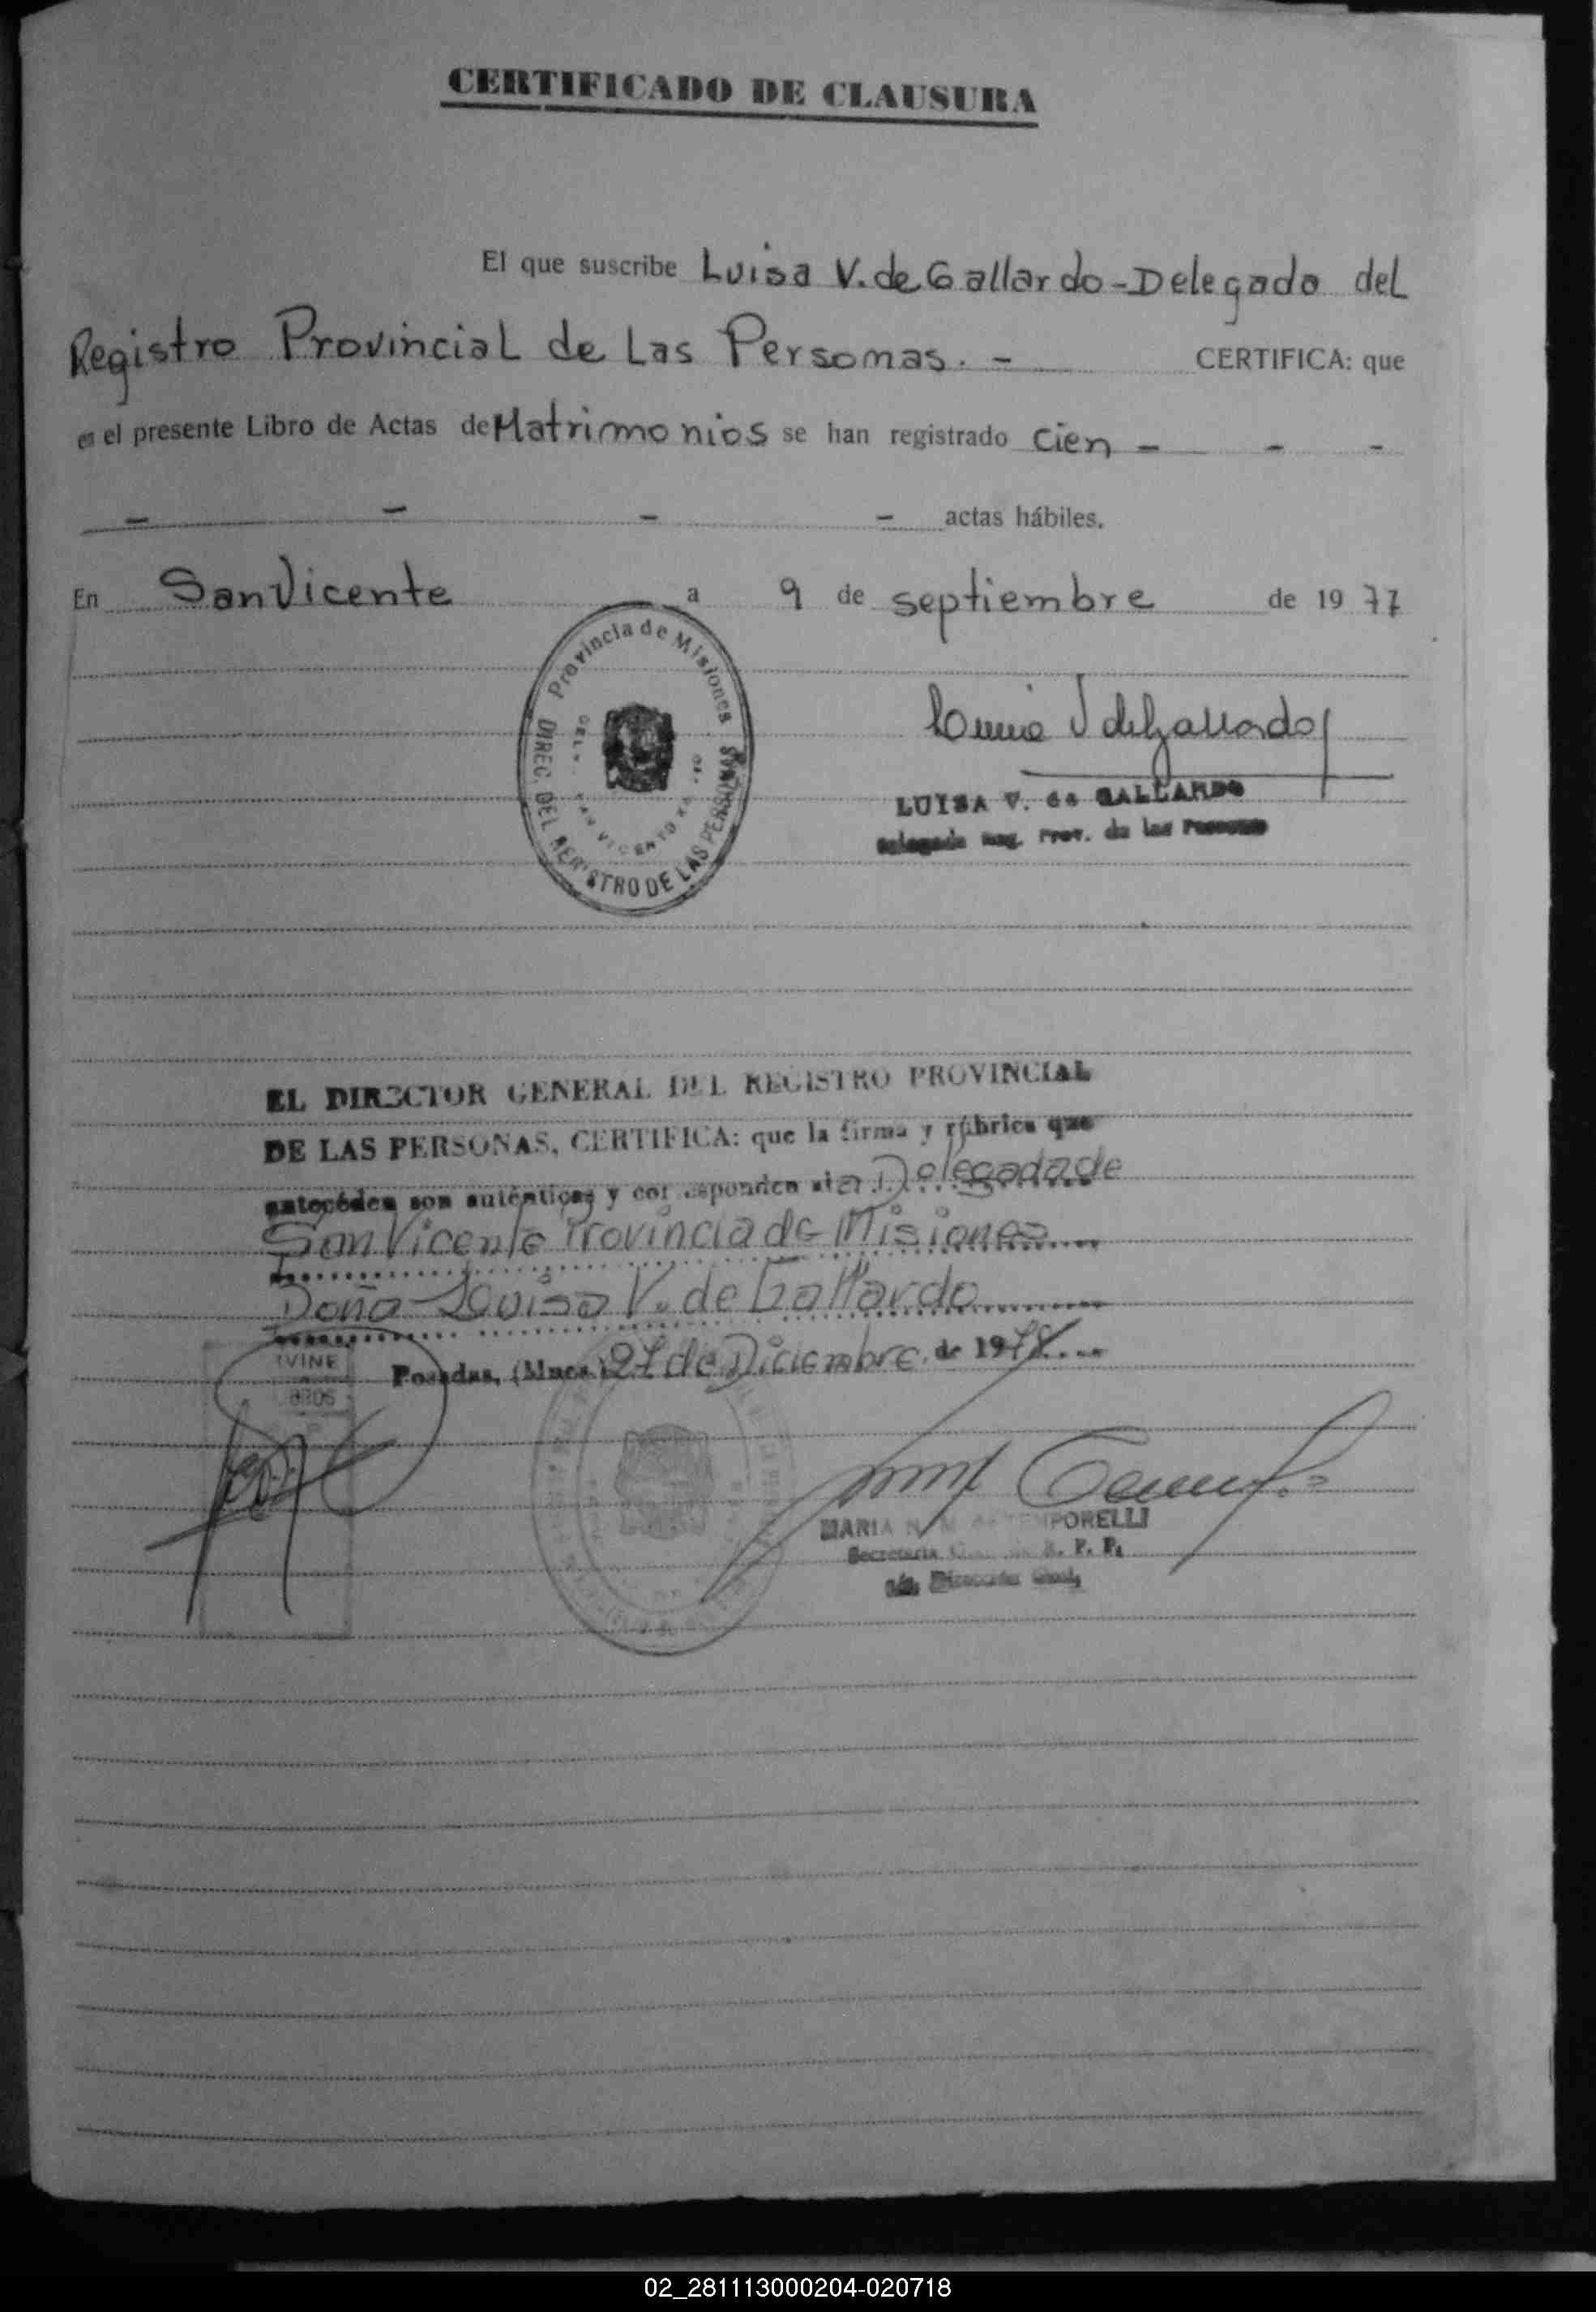 CERTIFICADO DE CLAUSURA
El que suscribe Luisa V. de Gallardo - Delegada del
Registro Provincial de Las Personas. - CERTIFICA: que
en el presente Libro de Actas de Matrimonios se han registrado cien - - -
- - - - actas hábiles.
En San Vicente a 9 de septiembre de 1977
Provincia de Misiones
DIREC. DEL REGISTRO DE LAS PERSONAS
LUISA V. de GALLARDO
Delegada Reg. Prov. de las Personas
EL DIRECTOR GENERAL DEL REGISTRO PROVINCIAL
DE LAS PERSONAS, CERTIFICA: que la firma y rúbrica que
anteceden son auténticas y corresponden a la Delegada de
San Vicente Provincia de Misiones
Doña Luisa V. de Gallardo
Posadas, (Mnes.) 27 de Diciembre de 1978
MARIA
Secretaria
02_281113000204-020718